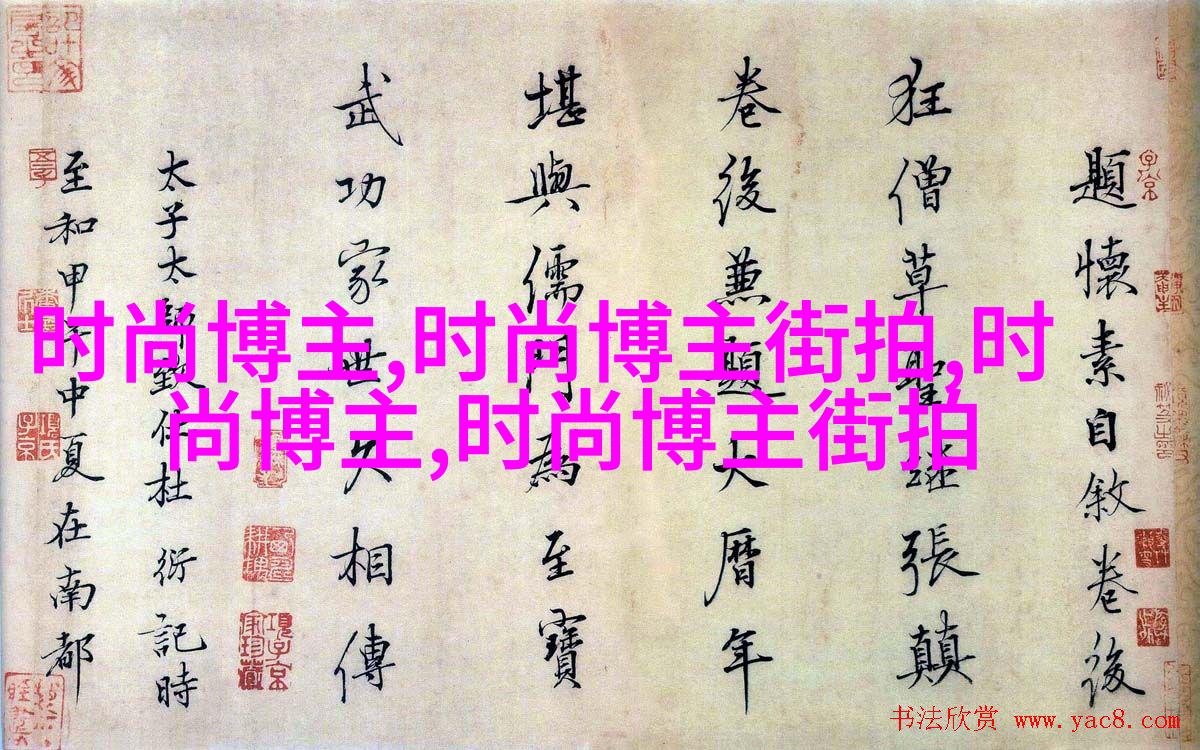 題懷素自敘卷後
狂僧草聖继張顛
卷後兼題大曆年
堪與儒門為至寶
武功家世久相傳
太子太師致仕杜衍記時
至和甲午中夏在南都
时尚博主,时尚博主街拍,时
尚博主,时尚博主街拍
书法欣赏 www.yac8.com